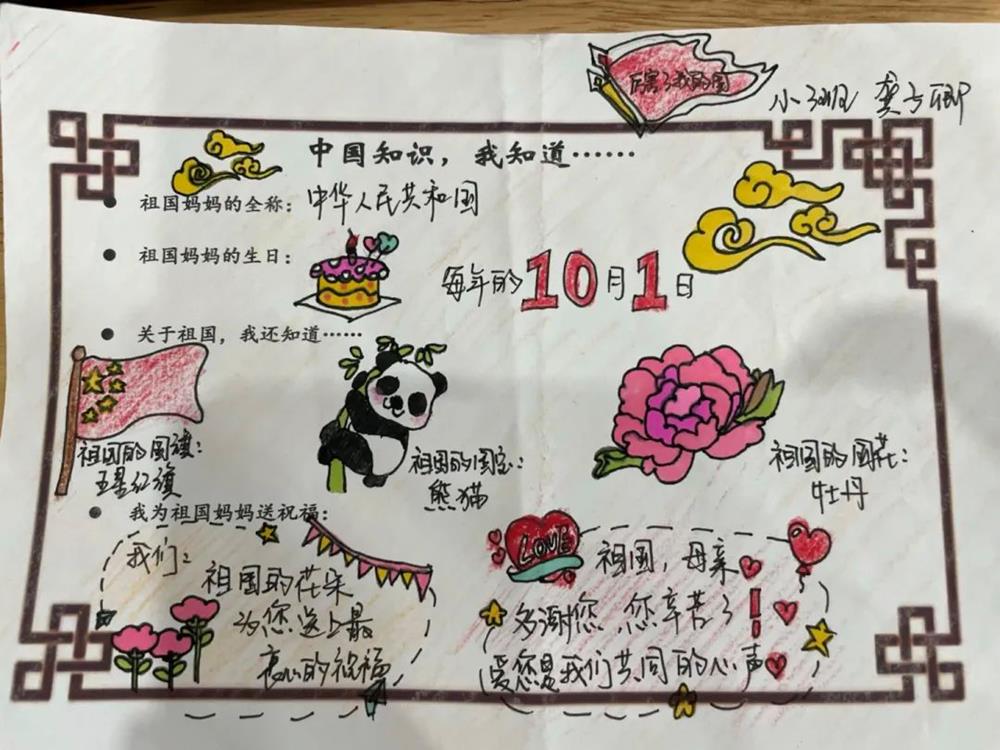 厉害了我的国
小班 龚
中国知识，我知道······
祖国妈妈的全称：中华人民共和国
祖国妈妈的生日：
每年的10月1日
关于祖国，我还知道······
祖国的国旗：
五星红旗
祖国的国宝：
熊猫
祖国的国花：
牡丹
我为祖国妈妈送祝福：
我们：
祖国的花朵
为您送上最
衷心的祝福
LOVE
祖国，母亲
多谢您，您辛苦了！
爱您是我们共同的心声